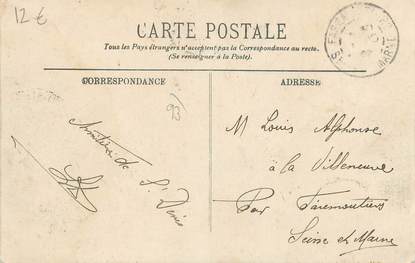 12 €
CARTE POSTALE
Tous les Pays étrangers n'acceptent pas la Correspondance au recto.
(Se renseigner à la Poste).
CORRESPONDANCE
ADRESSE
93)
de St Denis
M Louis Alphonse
à la Villeneuve
Par Faremoutiers
Seine et Marne